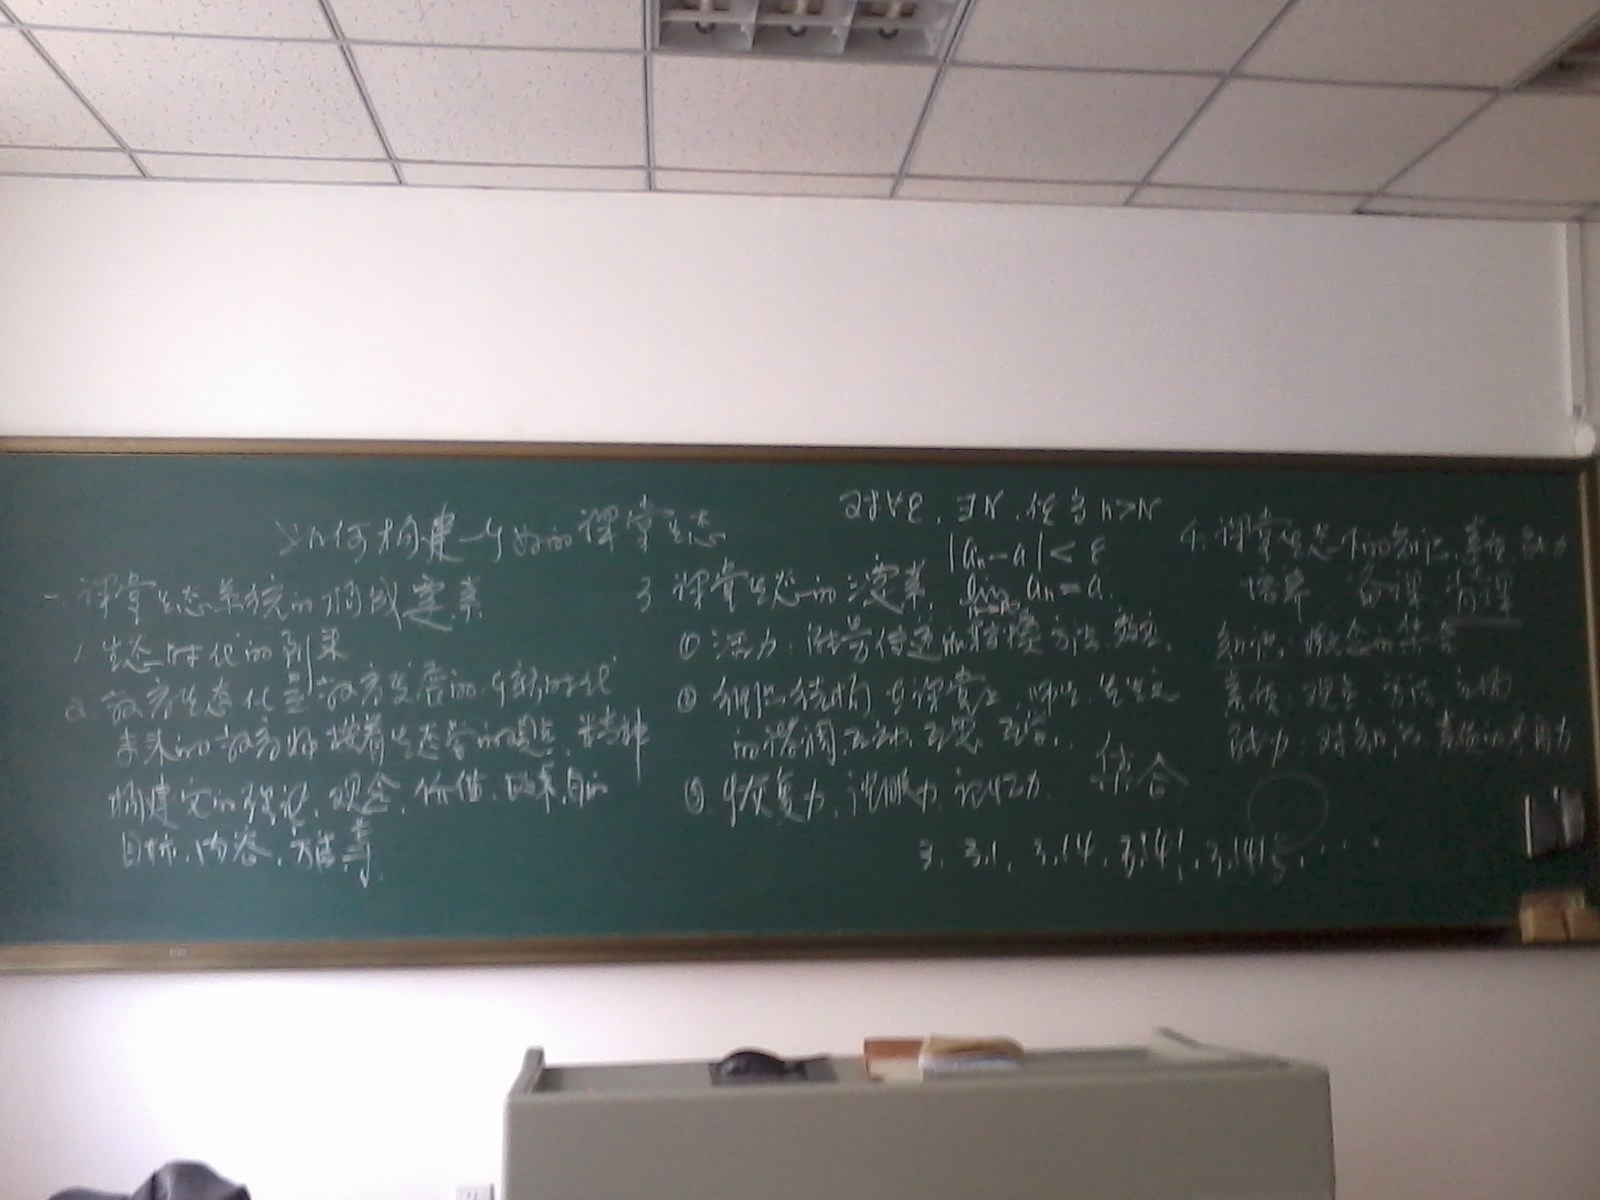 如何构建一个好的课堂生态
一. 课堂生态系统的构成要素
1 生态时代的到来
2. 教育生态化是教育发展的一个新时代
未来的教育将按着生态学的观点、精神
构建它的理论、观念、价值、政策、目的
目标、内容、方法等
对∀ε, ∃N, 使当n>N
|aₙ-a|<ε
lim aₙ=a.
3 课堂生态的要素
① 活力: 能量传递 方法 效应
② 组织结构 在课堂上, 师生、生生之
的协调 互动 互惠 互学
③ 恢复力, 抵抗力 记忆力
综合
3, 3.1, 3.14, 3.141, 3.1415, ...
4. 课堂生态下的知识、素质、能力
培养 备课 背课
知识: 概念的集合
素质: 观念 方法
能力: 对知识、素质的